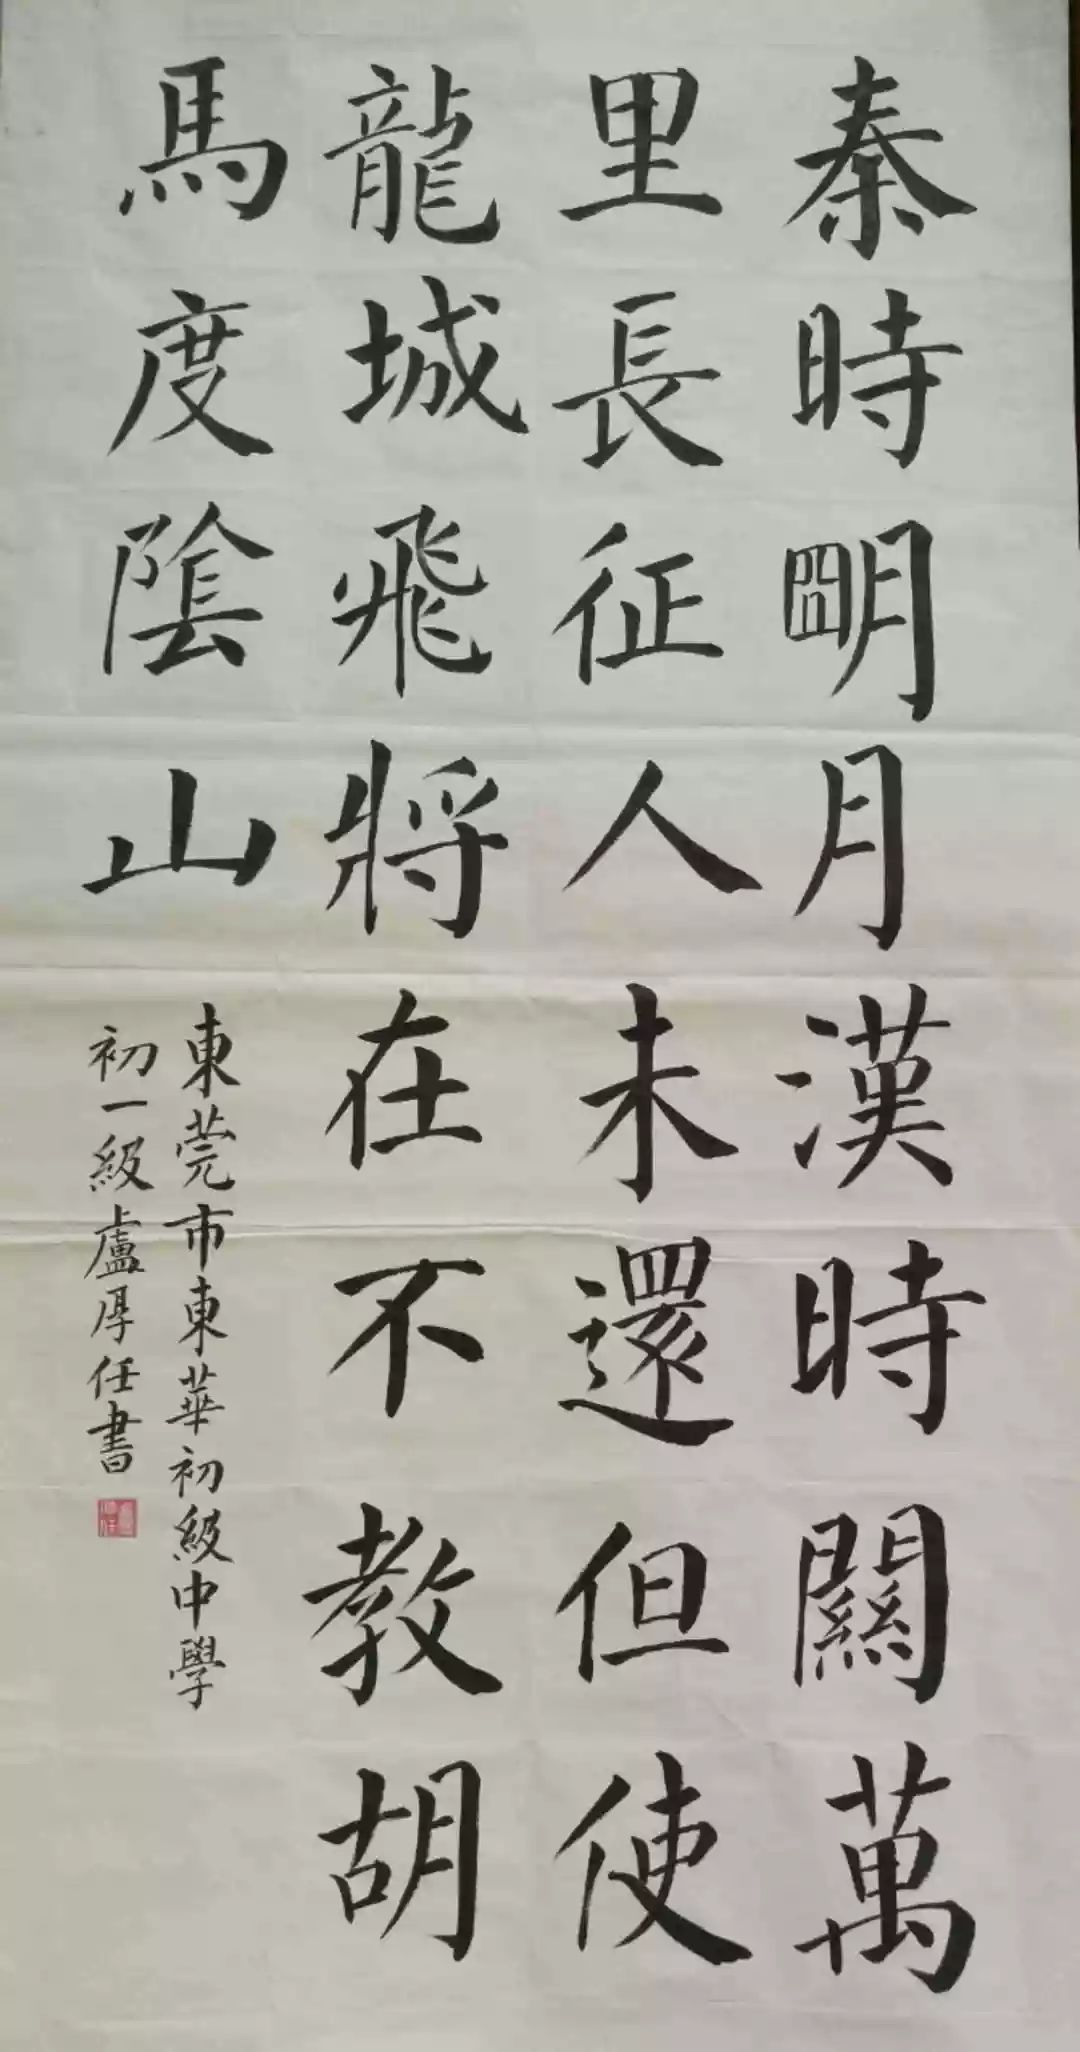 秦時明月漢時關萬
里長征人未還但使
龍城飛將在不教胡
馬度陰山
東莞市東華初級中學
初一級盧厚任書